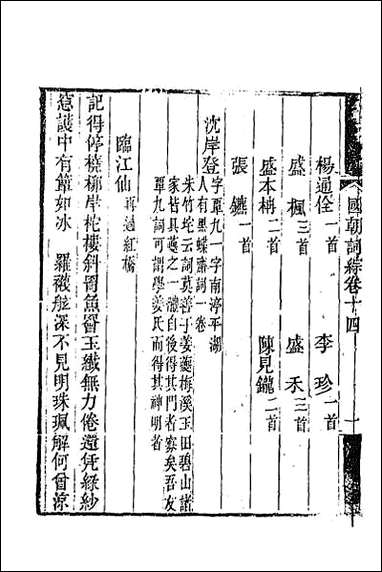 國朝詞綜卷十四 一
楊通佺一首 李珍一首
盛楓三首 盛禾三首
盛本柟二首 陳見鑨二首
張鑣一首
沈岸登字覃九一字南渟平湖
人有黑蝶齋詞一卷
朱竹垞云詞莫善于姜夔梅溪玉田碧山諸
家皆具夔之一體自後得其門者寡矣吾友
覃九詞可謂學姜氏而得其神明者
臨江仙再過紅橋
記得停橈柳岸柁樓斜罥魚罾玉纖無力倦還凭綠紗
窻護中有簟如冰 羅襪舩深不見明珠珮解何曾涼